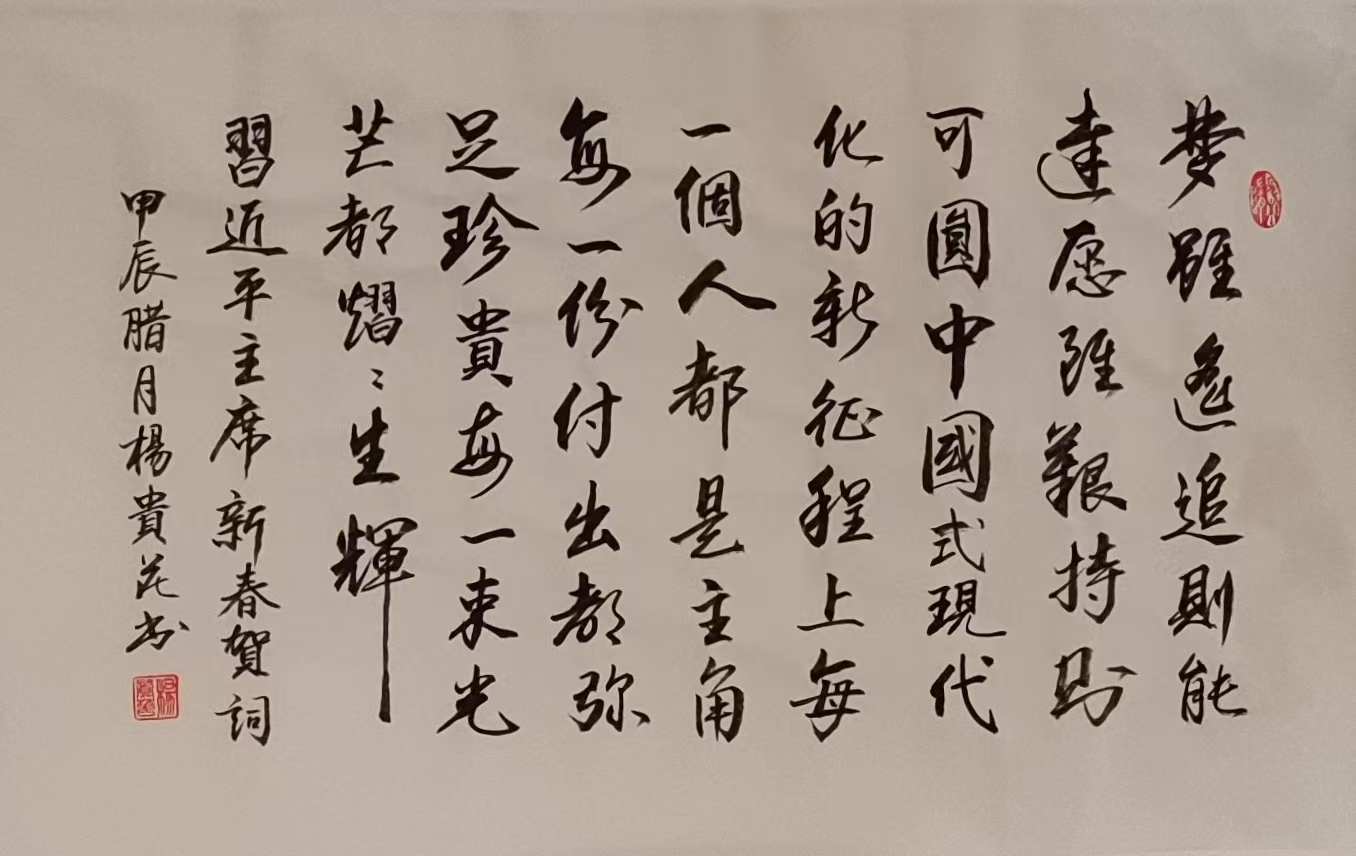 梦雖遙追則能
達愿雖艱持則
可圓中國式現代
化的新征程上每
一個人都是主角
每一份付出都弥
足珍貴每一束光
芒都熠〻生輝
習近平主席新春賀詞
甲辰腊月楊貴芘书